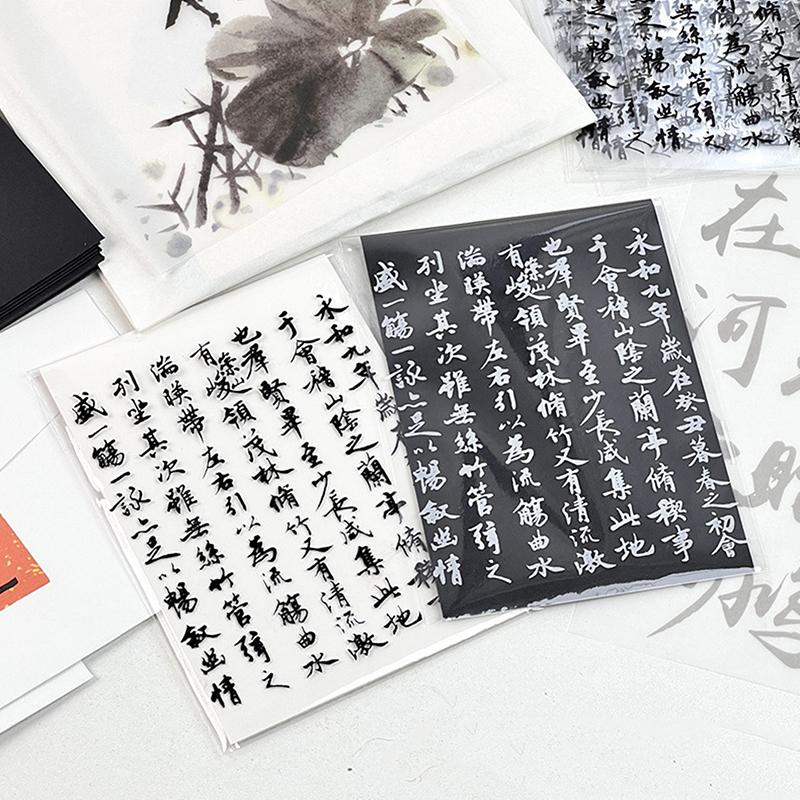 永和九年歲在癸丑暮春之初會
于會稽山陰之蘭亭脩稧事
也羣賢畢至少長咸集此地
有崇山峻領茂林脩竹又有清流激
湍暎帶左右引以為流觴曲水
列坐其次雖無絲竹管弦之
盛一觴一詠亦足以暢敘幽情
永和九年歲
于會稽山陰之蘭亭脩稧
也羣賢畢至少長咸集此地
有崇山峻領茂林脩竹又有清流激
湍暎帶左右引以為流觴曲水
列坐其次雖無絲竹管弦之
盛一觴一詠亦足以暢敘幽情
脩竹又有清流激
為流觴曲水
無絲竹管弦之
足以暢敘幽情
在河